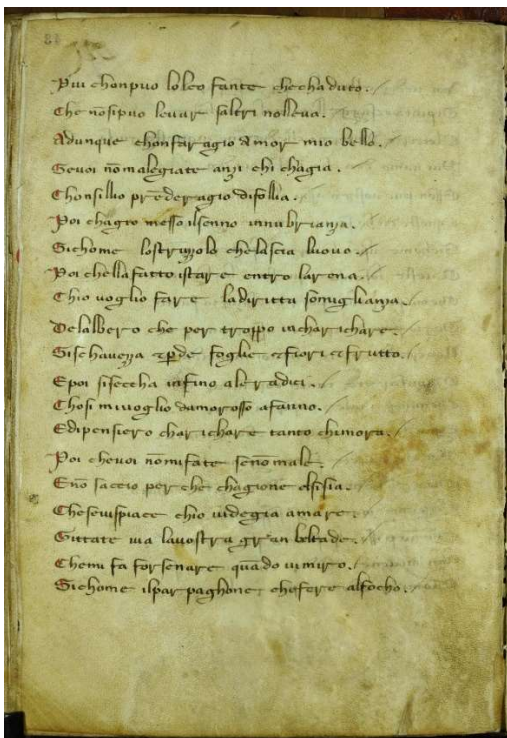 84
Piu chonpuo loleo fante che chaduto.
Che nōsipuo levar saltri nolleva.
Adunque chonfaragio Amor mio bello.
Sevoi nōmalegiate anzi chi chagia.
Chonsillio prēderagio difollia.
Poi chagio messo ilsenno innubrianza.
Sichome lostruzolo chelascia luovo.
Poi chella fatto istare entro larena.
Chio voglio fare ladiritta somiglianza.
Delalbero che per troppo incharichare.
Sischavezza ꝑde foglie e fiori e frutto.
Epoi sisecha infino ale radici.
Chosi mivoglio damorosso afanno.
Edipensiero charichare tanto chimora.
Poi chevoi nōmifate senōmale.
Enō saccio per che chagione elsisia.
Chesevispiace chio videgia amare.
Gittate via lavostra gran beltade.
Chemi fa forsenare quādo vimiro.
Sichome ilparpaglione chefere alfocho.